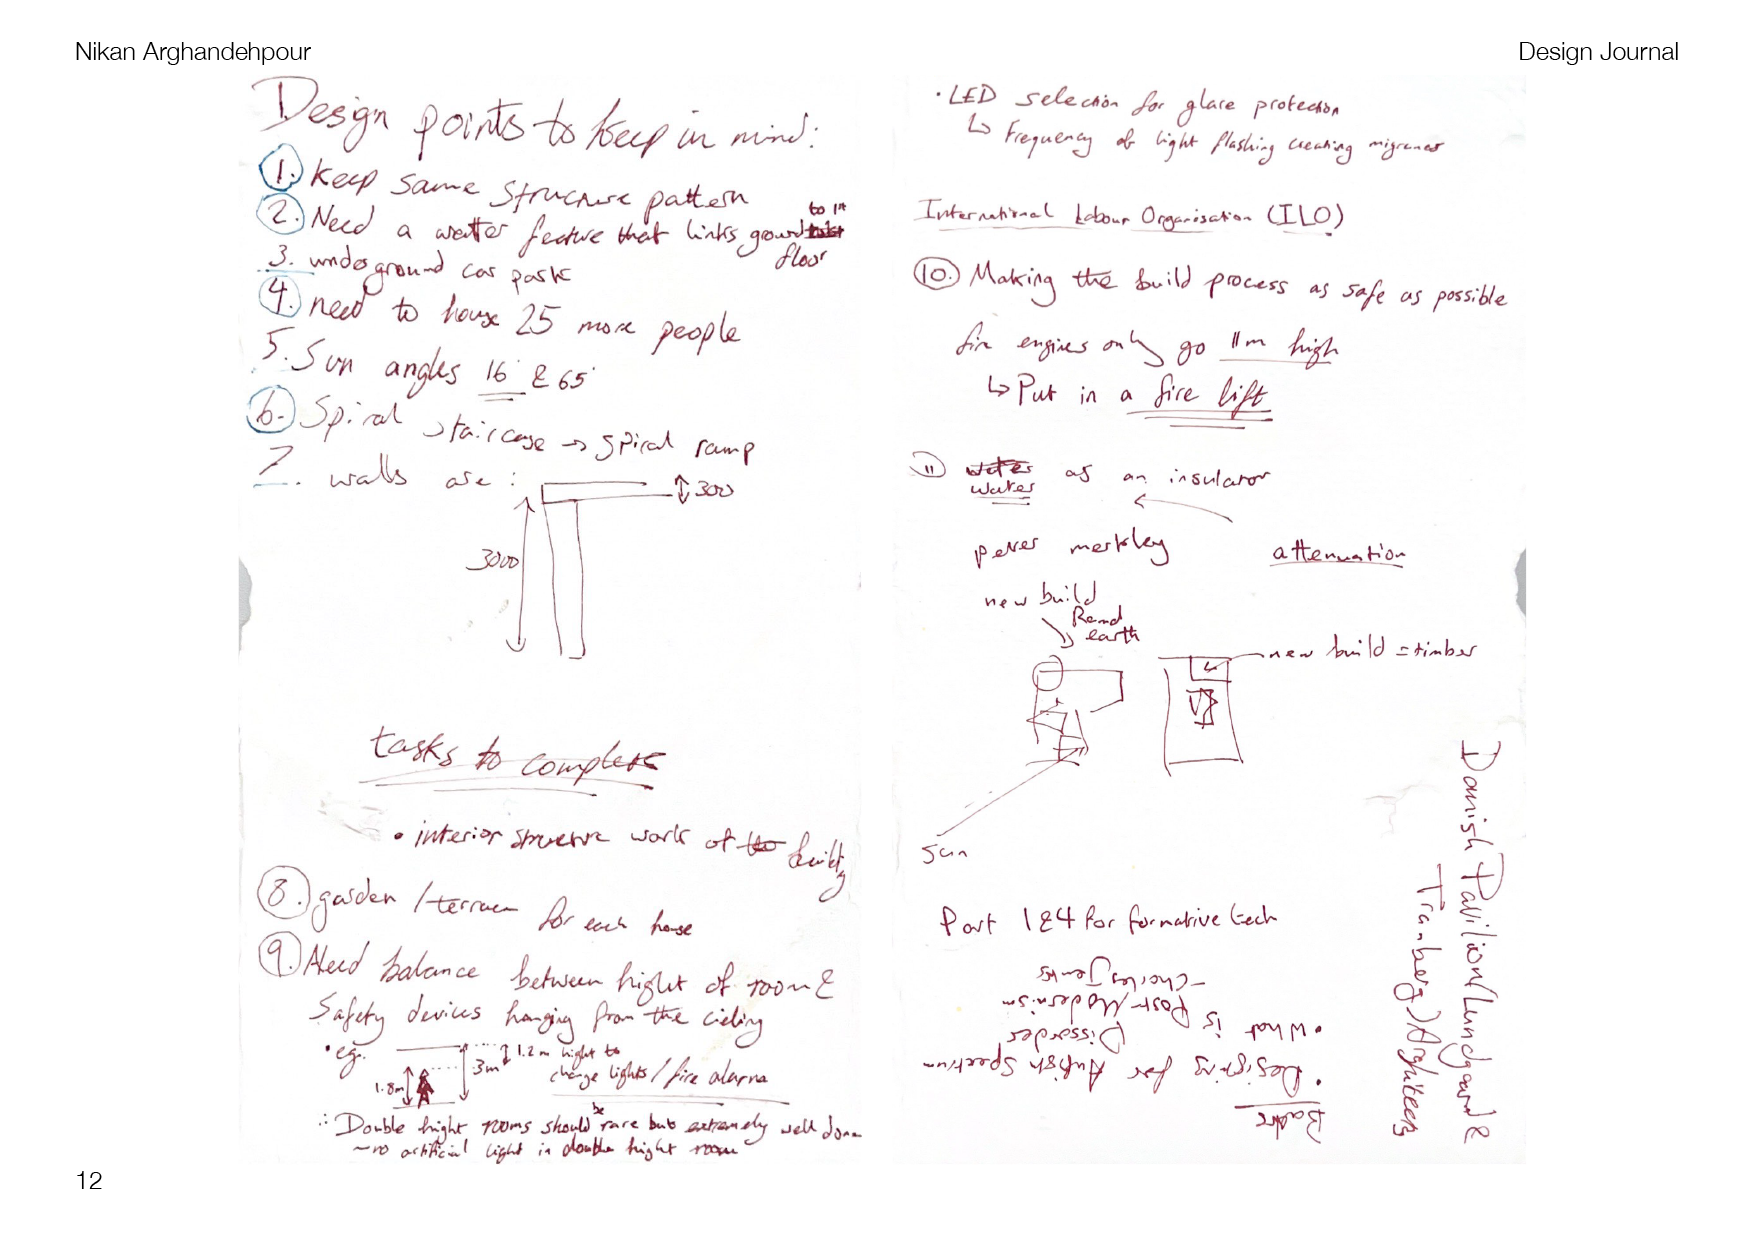 Nikan Arghandehpour
Design Journal
Design points to keep in mind:
1. Keep same structure pattern
2. Need a feature that links ground to 1st
floor
3. underground car park
4. need to house 25 more people
5. Sun angles 16° & 65°
6. Spiral staircase → spiral ramp
7. walls are :
300
3000
tasks to complete
• interior structure work of
8. garden / terrace for each house
9. Need balance between hight of room &
Safety devices hanging from the cieling
• eg.
1.8m
3m
1.2m hight to
change lights / fire alarms
∴ Double hight rooms should be rare but extremely well done
– no artificial light in double hight room
• LED selection for glare protection
↳ Frequency of light flashing creating
International Labour Organisation (ILO)
10. Making the build process as safe as possible
fire engines only go 11m high
↳ Put in a fire lift
11 water as an insulator
attenuation
new build
earth
new build = timber
Sun
Part 1 & 4 for formative tech
Danish Pavilion / Lundgaard &
Tranberg
Books
• Designing for Autism Spectrum
Dissorder
• What is Post-Modernism
– Charles Jenks
12